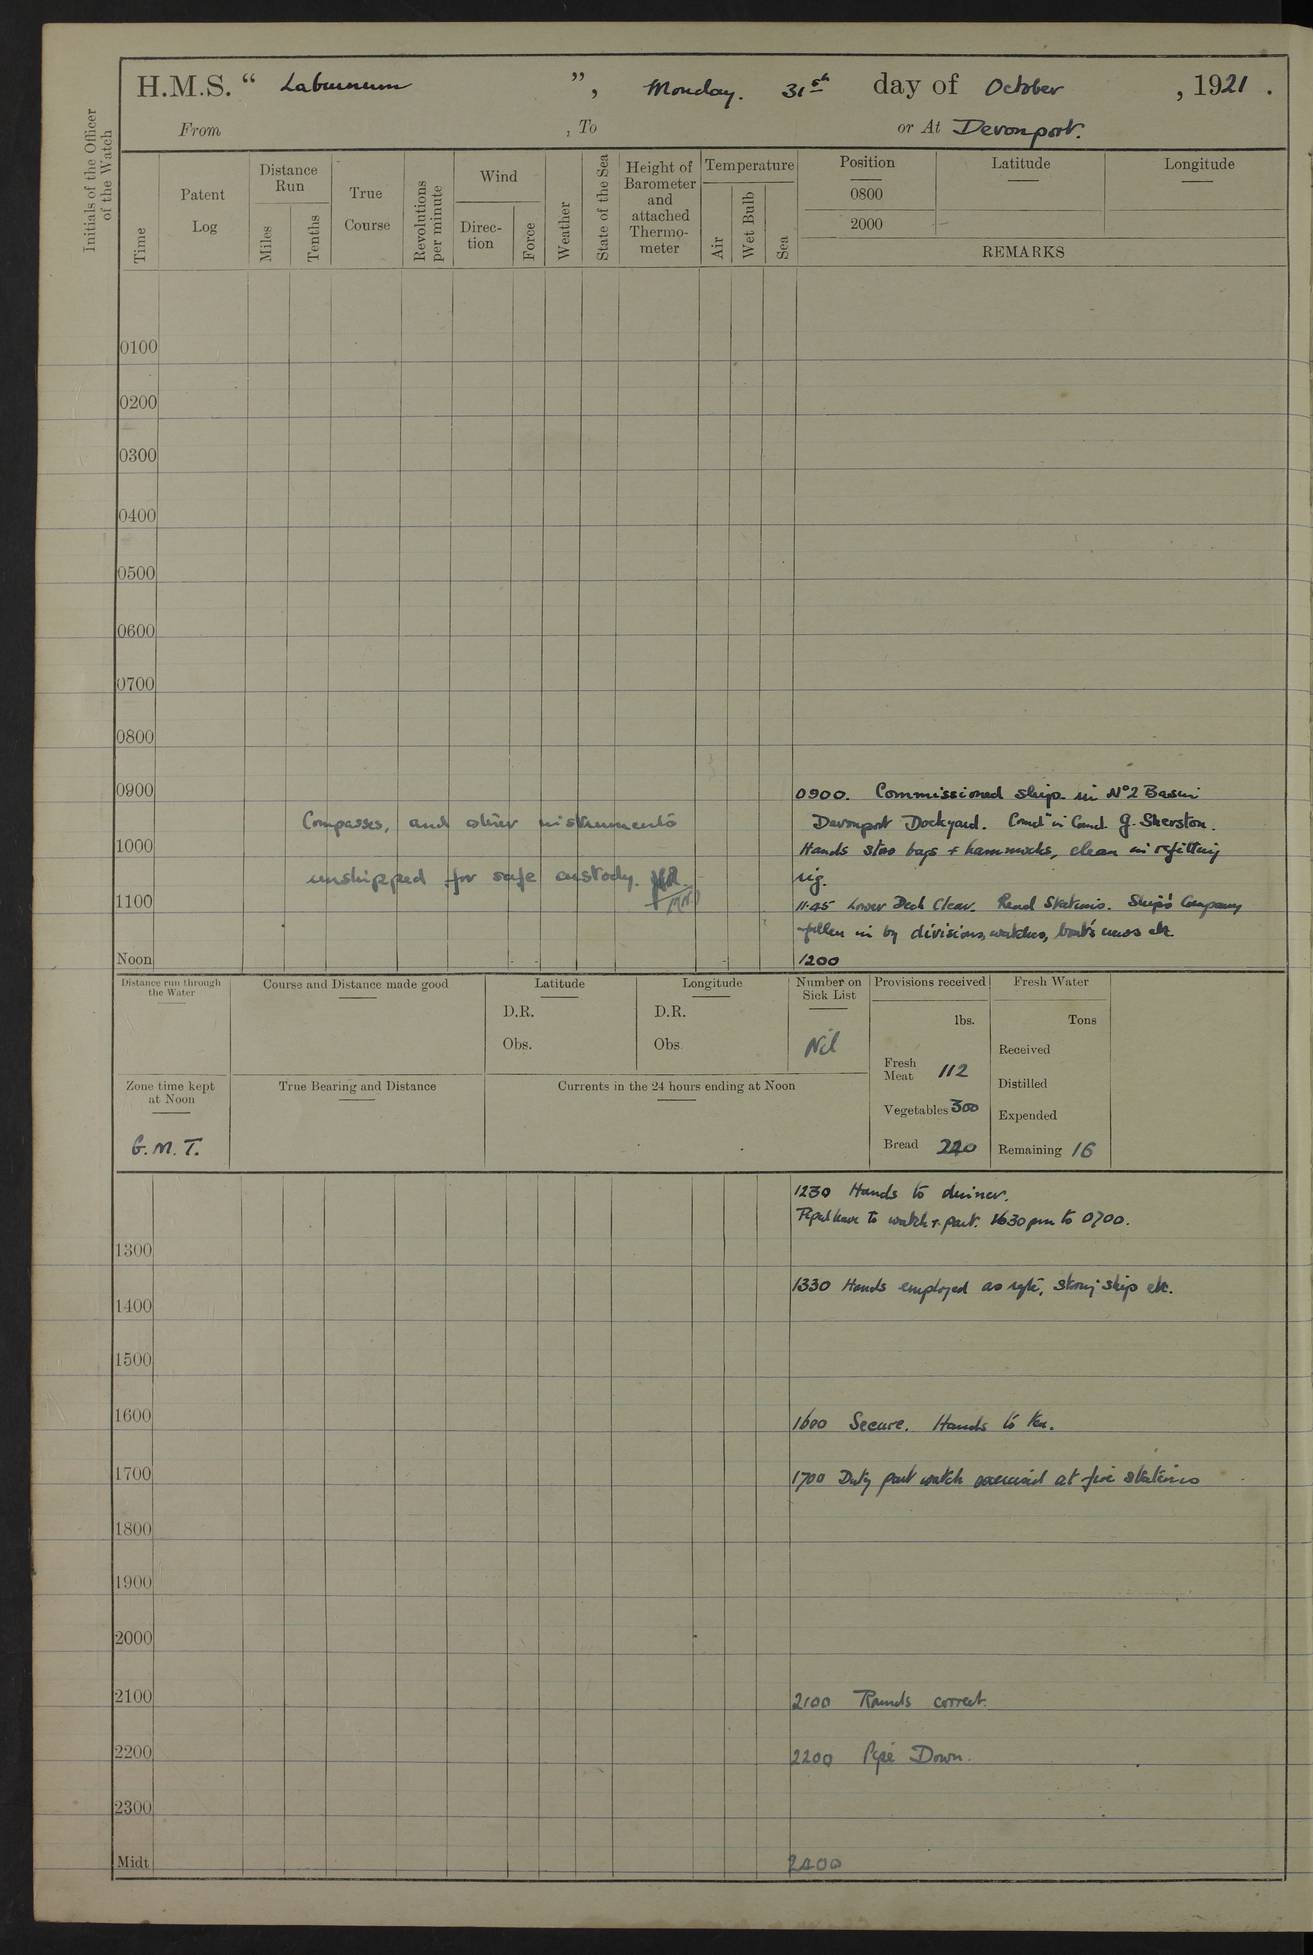 H.M.S. “ Laburnum ”, Monday. 31st day of October , 1921 .
From , To or At Devonport.
Initials of the Officer of the Watch
Time
Patent Log
Distance Run
Miles
Tenths
True Course
Revolutions per minute
Wind
Direc-tion
Force
Weather
State of the Sea
Height of Barometer and attached Thermo-meter
Temperature
Air
Wet Bulb
Sea
Position Latitude Longitude
0800
2000
REMARKS
0100
0200
0300
0400
0500
0600
0700
0800
0900 0900. Commissioned ship in No 2 Basin
Compasses, and other instruments Devonport Dockyard. Comdr in Comd. G. Sherston.
1000 Hands stow bags + hammocks, clean in refitting
unshipped for safe custody. rig.
1100 11.45 Lower Deck Clear. Read Stations. Ship's Company
fallen in by divisions, watches, boat's crews etc.
Noon 1200
Distance run through the Water
Course and Distance made good
Latitude
D.R.
Obs.
Longitude
D.R.
Obs.
Number on Sick List
Nil
Provisions received
lbs.
Fresh Meat 112
Vegetables 300
Bread 220
Fresh Water
Tons
Received
Distilled
Expended
Remaining 16
Zone time kept at Noon
G.M.T.
True Bearing and Distance
Currents in the 24 hours ending at Noon
1230 Hands to dinner.
leave to watch + part. 1630 pm to 0700.
1300
1330 Hands employed as reqte, storing ship etc.
1400
1500
1600 1600 Secure. Hands to tea.
1700 1700 Duty part watch exercised at fire stations
1800
1900
2000
2100 2100 Rounds correct.
2200 2200 Pipe Down.
2300
Midt 2400